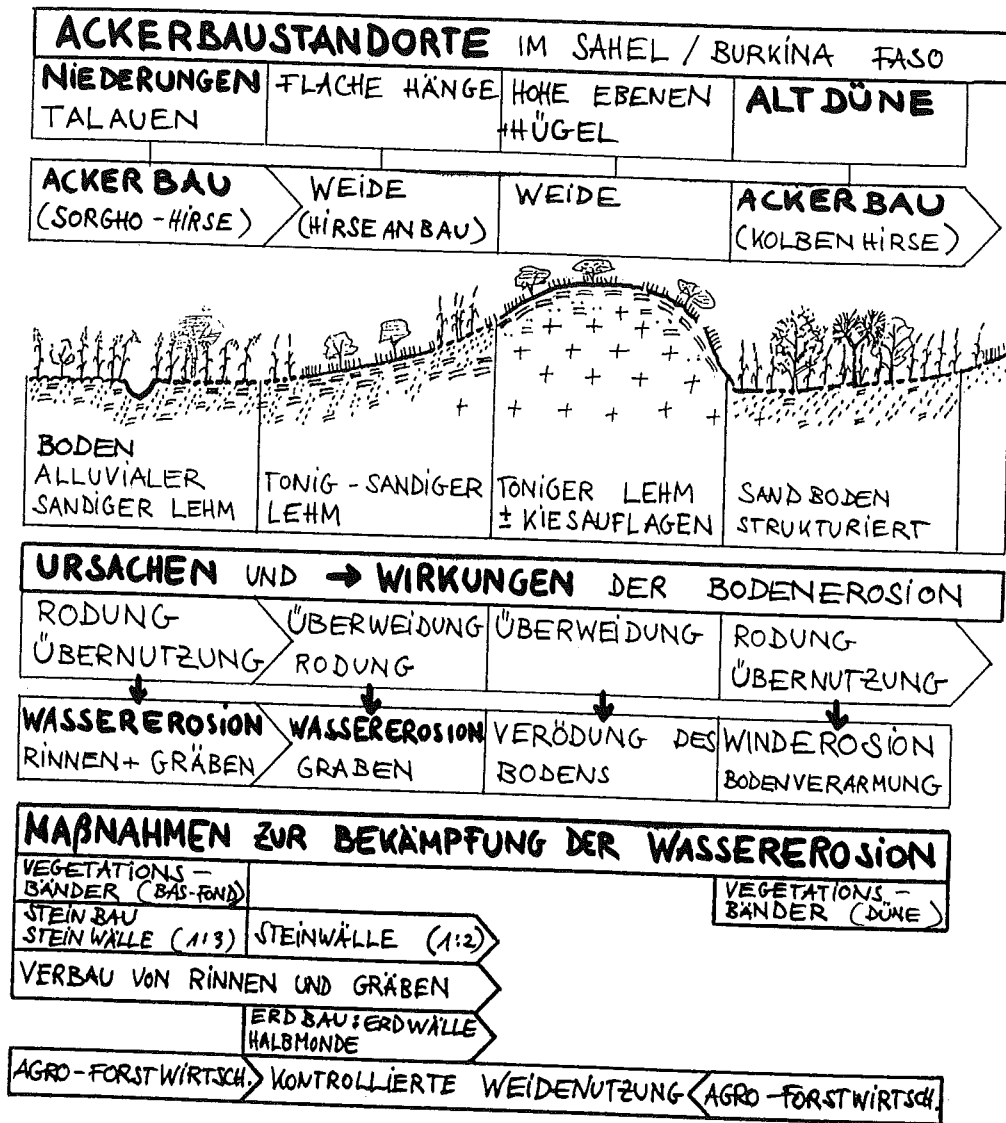 ACKERBAUSTANDORTE IM SAHEL / BURKINA FASO
NIEDERUNGEN
TALAUEN
FLACHE HÄNGE
HOHE EBENEN
+HÜGEL
ALTDÜNE
ACKERBAU
(SORGHO-HIRSE)
WEIDE
(HIRSEANBAU)
WEIDE
ACKERBAU
(KOLBENHIRSE)
BODEN
ALLUVIALER
SANDIGER LEHM
TONIG-SANDIGER
LEHM
TONIGER LEHM
± KIESAUFLAGEN
SANDBODEN
STRUKTURIERT
URSACHEN UND → WIRKUNGEN DER BODENEROSION
RODUNG
ÜBERNUTZUNG
ÜBERWEIDUNG
RODUNG
ÜBERWEIDUNG
RODUNG
ÜBERNUTZUNG
WASSEREROSION
RINNEN+ GRÄBEN
WASSEREROSION
GRABEN
VERÖDUNG DES
BODENS
WINDEROSION
BODENVERARMUNG
MAßNAHMEN ZUR BEKÄMPFUNG DER WASSEREROSION
VEGETATIONS-
BÄNDER (BAS-FOND)
VEGETATIONS-
BÄNDER (DÜNE)
STEINBAU
STEINWÄLLE (1:3)
STEINWÄLLE (1:2)
VERBAU VON RINNEN UND GRÄBEN
ERDBAU: ERDWÄLLE
HALBMONDE
AGRO-FORSTWIRTSCH.
KONTROLLIERTE WEIDENUTZUNG
AGRO-FORSTWIRTSCH.